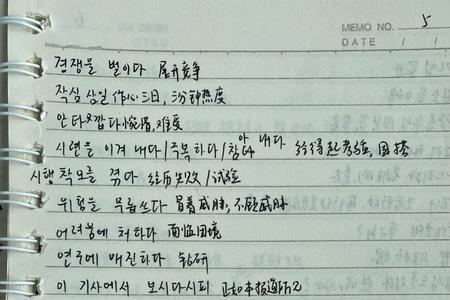 MEMO NO. 5
DATE / /
경쟁을 벌이다 展开竞争
작심 삼일 作心三日, 三分钟热度
안타깝다 惋惜, 难度
시련을 이겨 내다/극복하다/참아 내다 经得起考验, 困苦
시행 착오를 겪다 经历失败/试验
위험을 무릅쓰다 冒着威胁, 不顾威胁
어려움에 처하다 面临困境
연구에 매진하다 钻研
이 기사에서 보시다시피 正如本报道所见